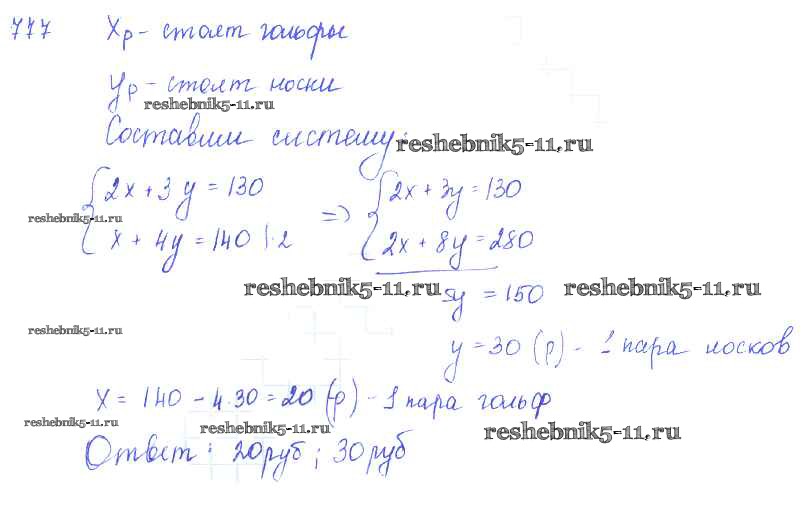 777 Xр - стоят гольфы
Yр - стоят носки
reshebnik5-11.ru
Составим систему:
reshebnik5-11.ru
{2x + 3y = 130 => {2x + 3y = 130
reshebnik5-11.ru
x + 4y = 140 |·2 2x + 8y = 280
reshebnik5-11.ru 5y = 150 reshebnik5-11.ru
reshebnik5-11.ru
y = 30 (р) - 1 пара носков
x = 140 - 4·30 = 20 (р) - 1 пара гольф
reshebnik5-11.ru reshebnik5-11.ru reshebnik5-11.ru
Ответ: 20 руб; 30 руб